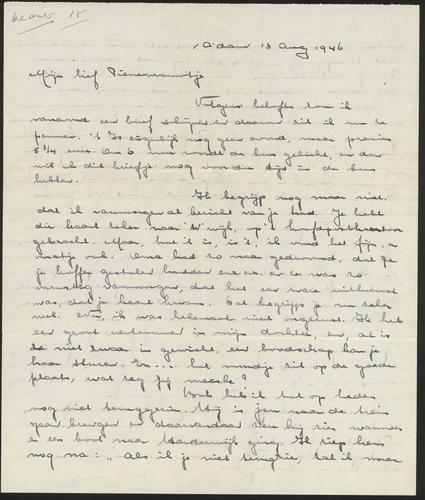 beantw 15
A'dam 13 Aug. 1946
Mijn lief
Volgens belofte zou ik
vanavond een brief schrijven en daarom zit ik nu te
pennen. 't Is eigenlijk nog geen avond, maar precies
5 3/4 uur. Om 6 uur wordt de bus gelicht, en dan
wil ik dit briefje nog voor die tijd in de bus
hebben.
Ik begrijp nog maar niet.
dat ik vanmorgen al bericht van je had. Je hebt
die kaart zeker naar 't hoofdpostkantoor
gebracht. Maar, hoe 't is, is 't, ik vind het fijn
Oma had zo naar gedroomd, dat ze
je koffer gestolen hadden enz. en ze was zo
vanmorgen, dat het een ware uitkomst
was, dat je kaart kwam. Dat begrijp je nu zeker
wel. ik was helemaal niet ongerust. Ik heb
een groot vertrouwen in mijn dochter, en, al is
ze niet zwaar in gewicht, een boodschap kan je
haar sturen. En... het mondje zit op de goede
plaats, wat zeg jij meiske?
heb ik tot op heden
nog niet teruggezien. Hij is Jan naar de trein
gaan brengen en daarvandaan zou hij zien wanneer
er een boot naar Harderwijk ging. Ik riep hem
nog na: "Als ik je niet terugzie, zal ik maar